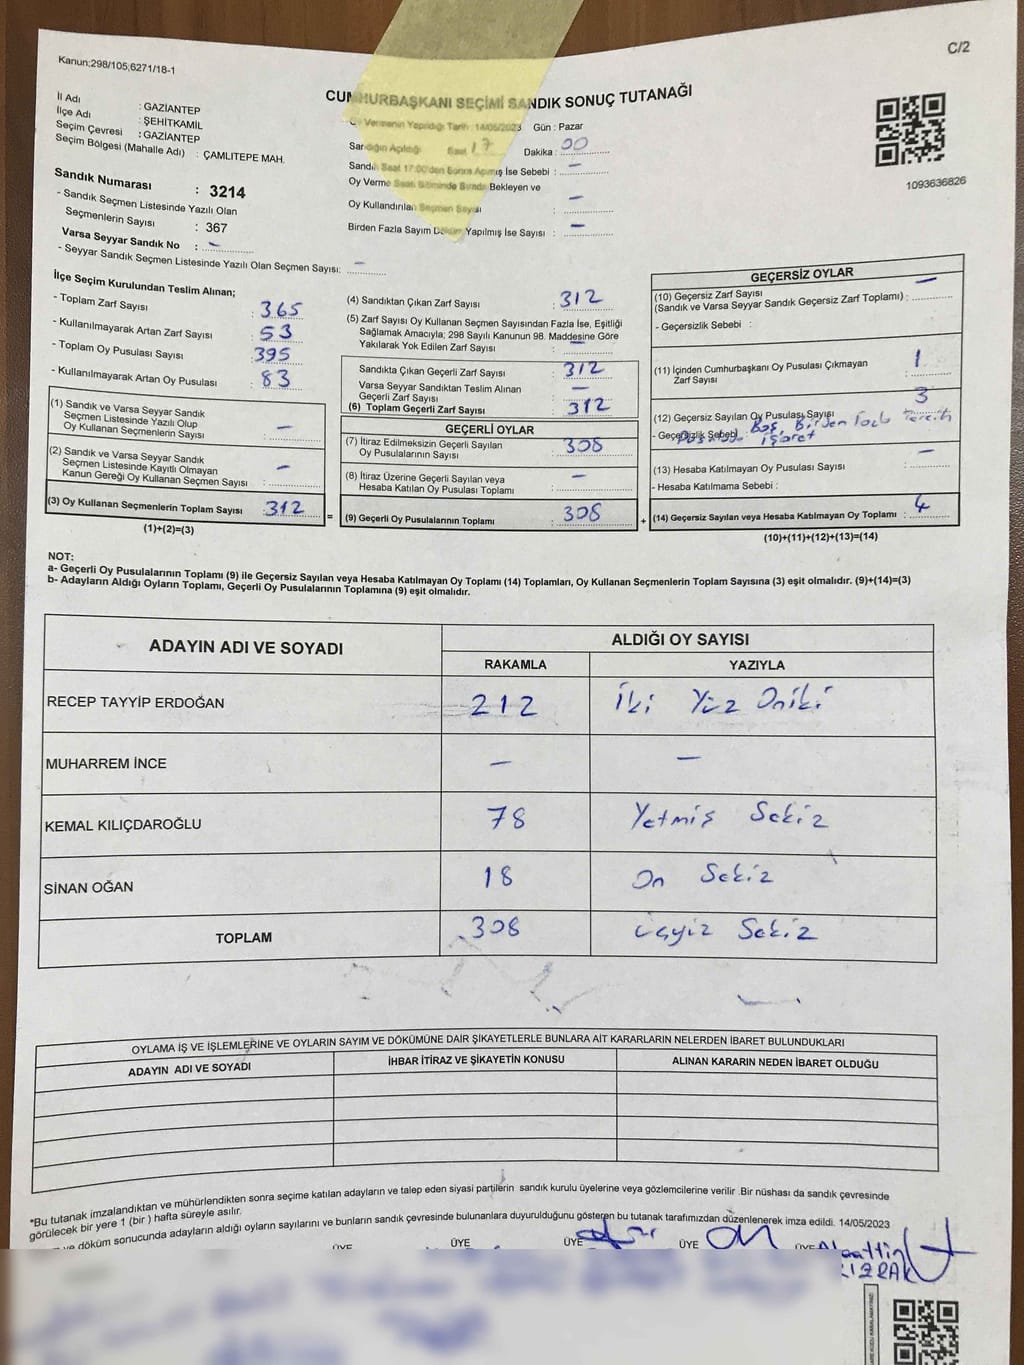 C/2
Kanun;298/105;6271/18-1
CUMHURBAŞKANI SEÇİMİ SANDIK SONUÇ TUTANAĞI
İl Adı : GAZİANTEP
İlçe Adı : ŞEHİTKAMİL
Seçim Çevresi : GAZİANTEP
Seçim Bölgesi (Mahalle Adı) : ÇAMLITEPE MAH.
Sandık Numarası : 3214
- Sandık Seçmen Listesinde Yazılı Olan
Seçmenlerin Sayısı : 367
Varsa Seyyar Sandık No : -
- Seyyar Sandık Seçmen Listesinde Yazılı Olan Seçmen Sayısı: -
Oy Vermenin Yapıldığı Tarih : 14/05/2023 Gün : Pazar
Sandığın Açıldığı Saat 17 Dakika : 00
Sandık Saat 17:00'den Sonra Açılmış İse Sebebi : -
Oy Verme Saati Bitiminde Sırada Bekleyen ve
Oy Kullandırılan Seçmen Sayısı : -
Birden Fazla Sayım Döküm Yapılmış İse Sayısı : -
1093636826
İlçe Seçim Kurulundan Teslim Alınan;
- Toplam Zarf Sayısı : 365
- Kullanılmayarak Artan Zarf Sayısı : 53
- Toplam Oy Pusulası Sayısı : 395
- Kullanılmayarak Artan Oy Pusulası : 83
(1) Sandık ve Varsa Seyyar Sandık
Seçmen Listesinde Yazılı Olup
Oy Kullanan Seçmenlerin Sayısı : -
(2) Sandık ve Varsa Seyyar Sandık
Seçmen Listesinde Kayıtlı Olmayan
Kanun Gereği Oy Kullanan Seçmen Sayısı : -
(3) Oy Kullanan Seçmenlerin Toplam Sayısı : 312
(1)+(2)=(3)
(4) Sandıktan Çıkan Zarf Sayısı : 312
(5) Zarf Sayısı Oy Kullanan Seçmen Sayısından Fazla İse, Eşitliği
Sağlamak Amacıyla; 298 Sayılı Kanunun 98. Maddesine Göre
Yakılarak Yok Edilen Zarf Sayısı : -
Sandıkta Çıkan Geçerli Zarf Sayısı : 312
Varsa Seyyar Sandıktan Teslim Alınan
Geçerli Zarf Sayısı : -
(6) Toplam Geçerli Zarf Sayısı : 312
GEÇERLİ OYLAR
(7) İtiraz Edilmeksizin Geçerli Sayılan
Oy Pusulalarının Sayısı : 308
(8) İtiraz Üzerine Geçerli Sayılan veya
Hesaba Katılan Oy Pusulası Toplamı : -
= (9) Geçerli Oy Pusulalarının Toplamı : 308
GEÇERSİZ OYLAR
(10) Geçersiz Zarf Sayısı
(Sandık ve Varsa Seyyar Sandık Geçersiz Zarf Toplamı) : -
- Geçersizlik Sebebi :
(11) İçinden Cumhurbaşkanı Oy Pusulası Çıkmayan
Zarf Sayısı : 1
(12) Geçersiz Sayılan Oy Pusulası Sayısı : 3
- Geçersizlik Sebebi : Boş, Birden Fazla Tercih
İşaret
(13) Hesaba Katılmayan Oy Pusulası Sayısı : -
- Hesaba Katılmama Sebebi :
+ (14) Geçersiz Sayılan veya Hesaba Katılmayan Oy Toplamı : 4
(10)+(11)+(12)+(13)=(14)
NOT:
a- Geçerli Oy Pusulalarının Toplamı (9) ile Geçersiz Sayılan veya Hesaba Katılmayan Oy Toplamı (14) Toplamları, Oy Kullanan Seçmenlerin Toplam Sayısına (3) eşit olmalıdır. (9)+(14)=(3)
b- Adayların Aldığı Oyların Toplamı, Geçerli Oy Pusulalarının Toplamına (9) eşit olmalıdır.
ADAYIN ADI VE SOYADI ALDIĞI OY SAYISI
RAKAMLA YAZIYLA
RECEP TAYYİP ERDOĞAN 212 İki Yüz Oniki
MUHARREM İNCE - -
KEMAL KILIÇDAROĞLU 78 Yetmiş Sekiz
SİNAN OĞAN 18 On Sekiz
TOPLAM 308 üçyüz Sekiz
OYLAMA İŞ VE İŞLEMLERİNE VE OYLARIN SAYIM VE DÖKÜMÜNE DAİR ŞİKAYETLERLE BUNLARA AİT KARARLARIN NELERDEN İBARET BULUNDUKLARI
ADAYIN ADI VE SOYADI İHBAR İTİRAZ VE ŞİKAYETİN KONUSU ALINAN KARARIN NEDEN İBARET OLDUĞU
*Bu tutanak imzalandıktan ve mühürlendikten sonra seçime katılan adayların ve talep eden siyasi partilerin sandık kurulu üyelerine veya gözlemcilerine verilir .Bir nüshası da sandık çevresinde
görülecek bir yere 1 (bir ) hafta süreyle asılır.
ve döküm sonucunda adayların aldığı oyların sayılarını ve bunların sandık çevresinde bulunanlara duyurulduğunu gösteren bu tutanak tarafımızdan düzenlenerek imza edildi. 14/05/2023
ÜYE ÜYE ÜYE ÜYE ÜYE Alaattin